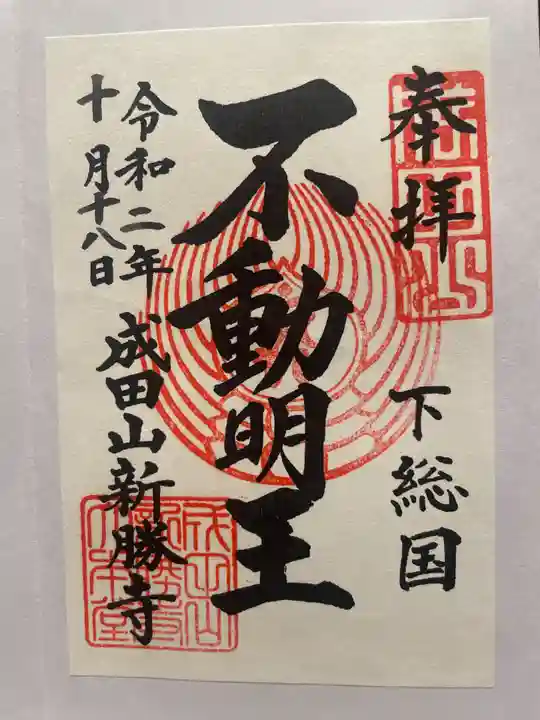 奉拝
下総国
不動明王
令和二年
十月十八日
成田山新勝寺